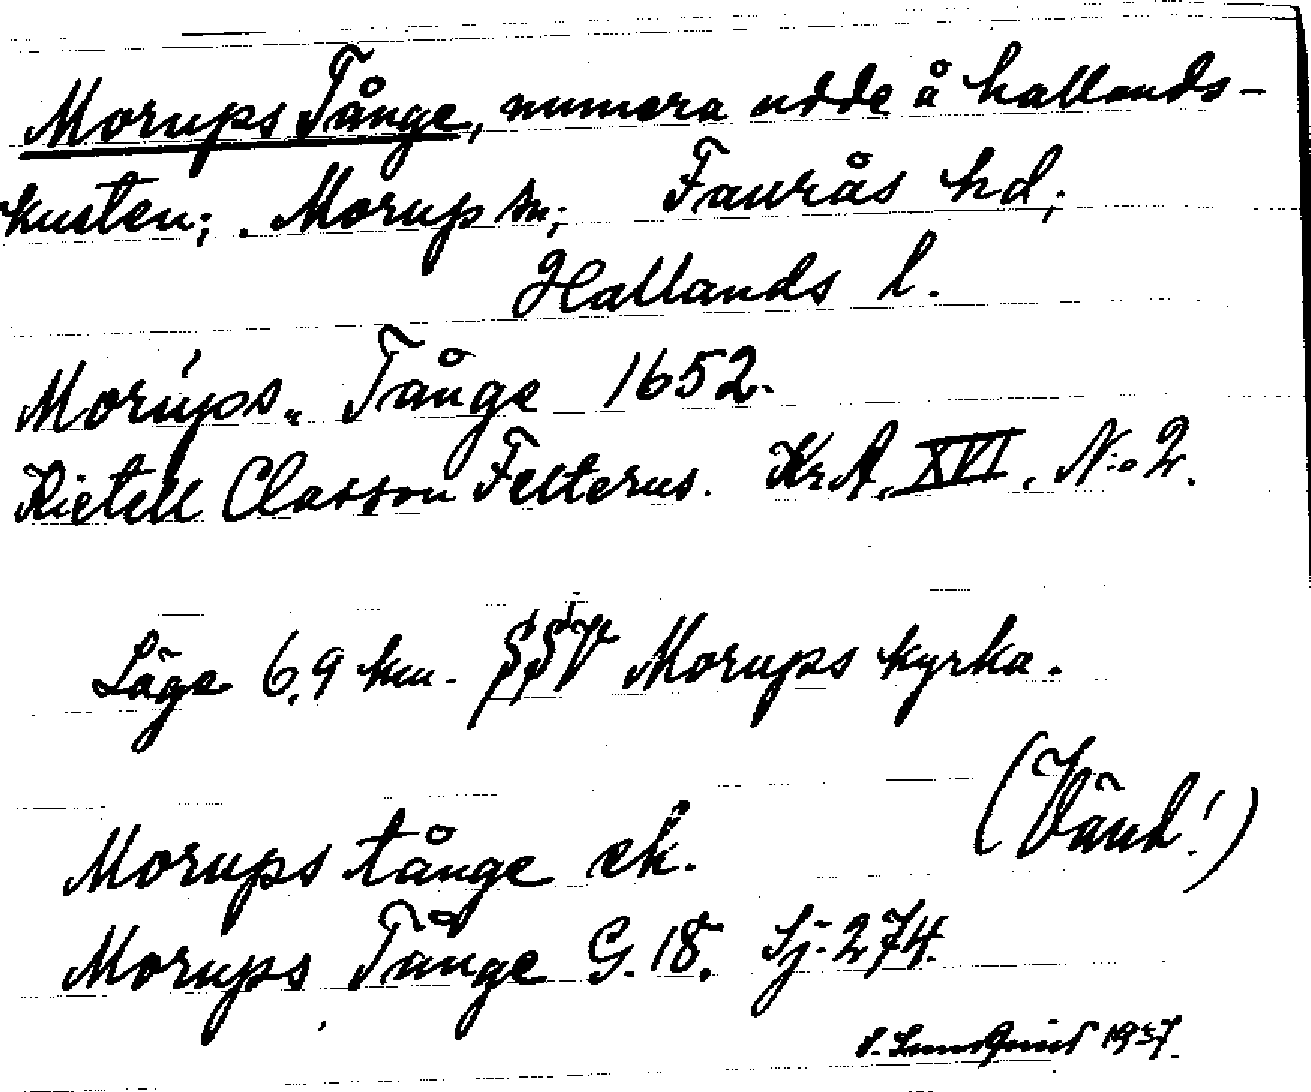 Morups Tånge, numera udde å hallands-
kusten; . Morup sn; Faurås hd;
Hallands l.
Morups. Tånge 1652.
Kietell Classon Felterus. Kr.A. XVI. N:o 2.
Läge 6,9 km. SSV Morups kyrka.
(Vänd!)
Morups tånge ek.
Morups Tånge G.18. Sj. 274.
Lundquist 1937.